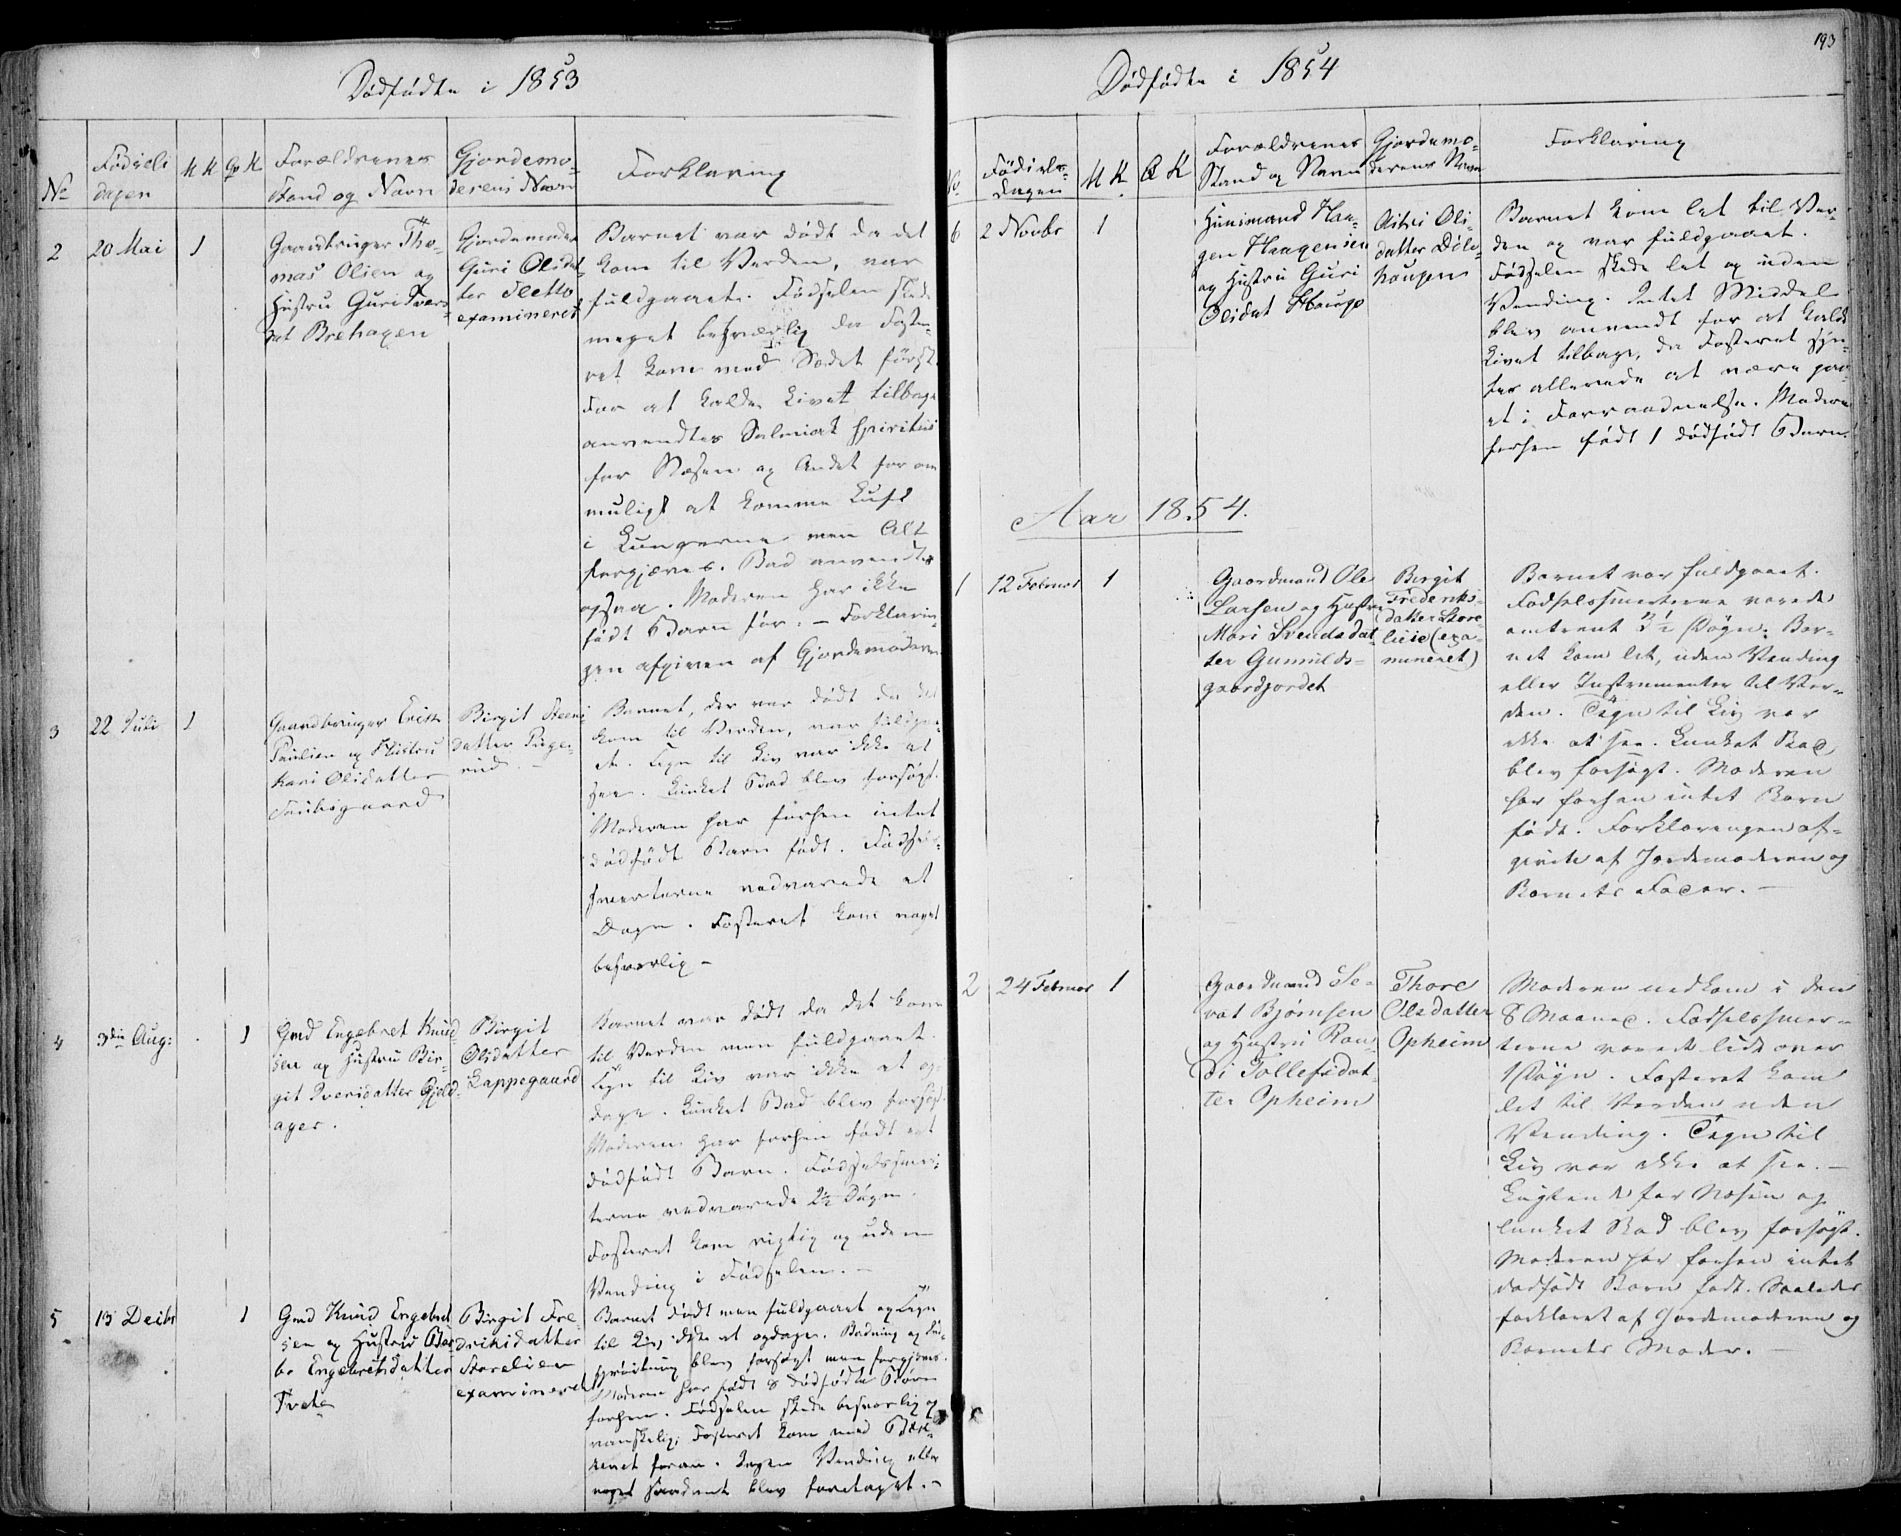 Dødfødte i 1853
No
Fødsels
dagen
M K
Qv K
Forældrenes
Stand og Navn
Gjordemo-
derens Navn
Forklaring
2
20 Mai
1
Gaardbruger Tho-
mas Olsen og
Hustru Guri Ivers
dat Brehagen
Gjordemoder
Guri Olsdat-
ter Sletto
examineret
Barnet var dødt da det
kom til Verden, var
fuldgaaet. Fødselen skede
meget besværlig da Foste-
ret kom med Sædet først.
For at kalde Livet tilbage
anvendtes Salmiak spiritus
for Næsen og Andet for om
muligt at komme Luft
i Lungerne men Alt
forgjæves. Bad anvendtes
ogsaa. Moderen har ikke
født Barn før. – Forklarin-
gen afgiven af Gjordemoderen
3
22 Juli
1
Gaardbruger Erik
Paulsen og Hustru
Kari Olsdatter
Birgit Steens
datter Puge-
rud. –
Barnet, der var dødt da det
kom til Verden, var fuldgaa-
et. Tegn til Liv var ikke at
see. Lunket Bad blev forsøgt.
Moderen har forhen intet
dødfødt Barn født. Fødsels-
smerterne vedvarede et
Døgn. Fosteret kom noget
besværlig –
4
3die Aug:
1
Gmd Engebret Knud
sen og Hustru Bir-
git Iversdatter Gjeld-
ager.
Birgit
Olsdatter
Kappegaard
Barnet var dødt da det kom
til Verden men fuldgaaet.
Tegn til Liv var ikke at op-
dage. Lunket Bad blev forsøgt.
Moderen har forhen født et
dødfødt Barn. Fødselssmer-
terne vedvarede 2½ Døgn.
Fosteret kom rigtig og uden
Vending i Fødselen. –
5
13 Decbr
1
Gmd Knud Engebret
sen og Hustru Bar-
bo Engebretsdatter
Tveto
Birgit Fre-
driksdatter
Storelien
examineret
Barnet dødt men fuldgaaet og Tegn
til Liv ikke at opdage. Badning og Ind-
sprøitning blev forsøgt men forgjæves.
Moderen har født 8 dødfødte Børn
forhen. Fødselen skede besværlig og
vanskelig; Fosteret kom med
foran. Ingen Vending eller
noget saadant blev foretaget. –
193
Dødfødte i 1854
No.
Fødsels-
dagen
M K
Q K
Forældrenes
Stand og Navn
Gjordemo-
derens Navn
Forklaring
6
2 Novbr
1
Huusmand Haa-
gen Haagensen
og Hustru Guri
Olsdat Haugo
Astri Ols
datter Døle-
haugen
Barnet kom let til Ver-
den og var fuldgaaet.
Fødselen skede let og uden
Vending. Intet Middel
blev anvendt for at kalde
Livet tilbage, da Fosteret syn-
tes allerede at være gaa-
et i Forraadnelse. Moderen
forhen født 1 dødfødt Barn.
Aar 1854.
1
12 Februar
1
Gaardmand Ole
Larsen og Hustru
Mari Svendsdat-
ter Gunnulds-
gaardjordet
Birgit
Frederiks-
datter Store-
liein (exa-
mineret)
Barnet var fuldgaaet.
Fødselssmerterne varede
omtrent 3½ Døgn. Bar-
net kom let, uden Vending
eller Instrumenter til Ver-
den. Tegn til Liv var
ikke at see. Lunket Bad
blev forsøgt. Moderen
har forhen intet Barn
født. Forklaringen af-
given af Jordemoderen og
Barnets Fader. –
2
24 Februar
1
Gaardmand Se-
vat Bjørnsen
og Hustru Ran-
di Tollefsdat-
ter Opheim
Thore
Olsdatter
Opheim
Moderen nedkom i den
8 Maaned. Fødselssmer-
terne varede lidt over
1 Døgn. Fosteret kom
let til Verden uden
Vending. Tegn til
Liv var ikke at see. –
Lugtende for Næsen og
lunket Bad blev forsøgt.
Moderen har forhen intet
dødfødt Barn født. Saaledes
forklaret af Jordemoderen og
Barnets Moder. –